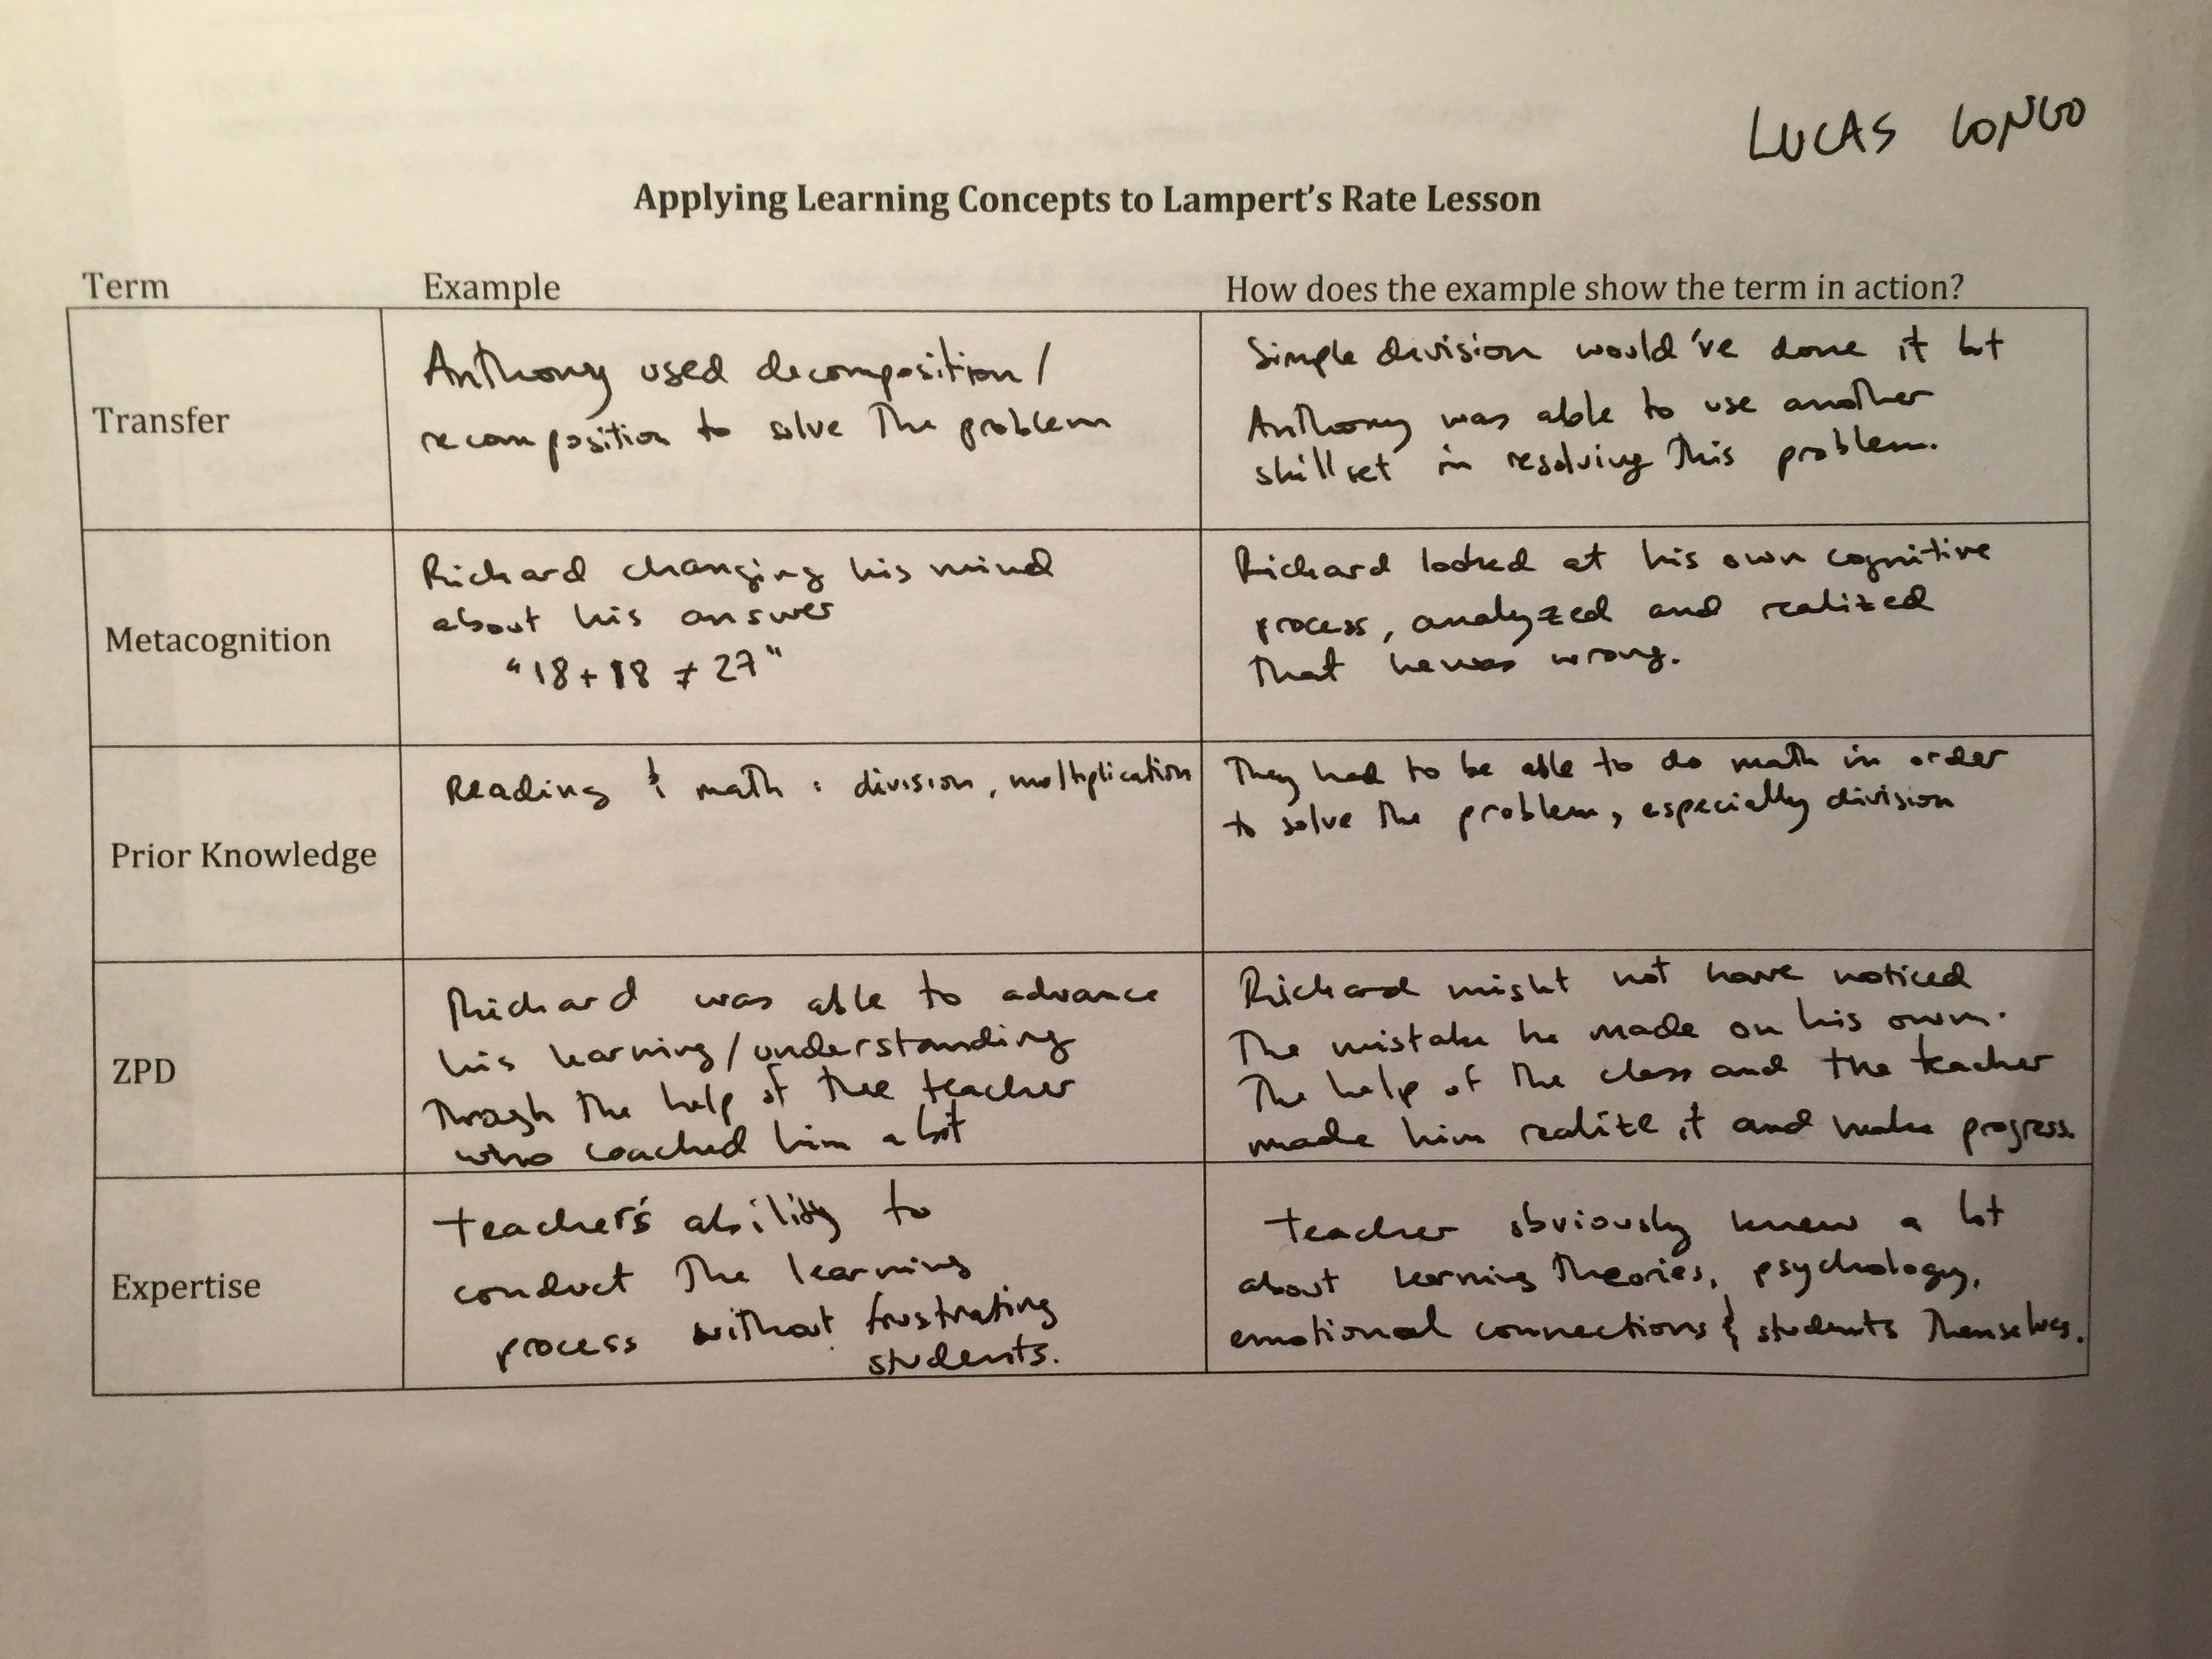 LUCAS LONGO
Applying Learning Concepts to Lampert's Rate Lesson
Term Example How does the example show the term in action?
Transfer
Anthony used decomposition/
recomposition to solve the problem
Simple division would've done it but
Anthony was able to use another
skillset in resolving this problem.
Metacognition
Richard changing his mind
about his answer
"18 + 18 ≠ 27"
Richard looked at his own cognitive
process, analyzed and realized
that he was wrong.
Prior Knowledge
Reading & math: division, multiplication
They had to be able to do math in order
to solve the problem, especially division
ZPD
Richard was able to advance
his learning/understanding
through the help of the teacher
who coached him a bit
Richard might not have noticed
the mistake he made on his own.
The help of the class and the teacher
made him realize it and make progress.
Expertise
teacher's ability to
conduct the learning
process without frustrating
students.
teacher obviously knew a lot
about learning theories, psychology,
emotional connections & students themselves.